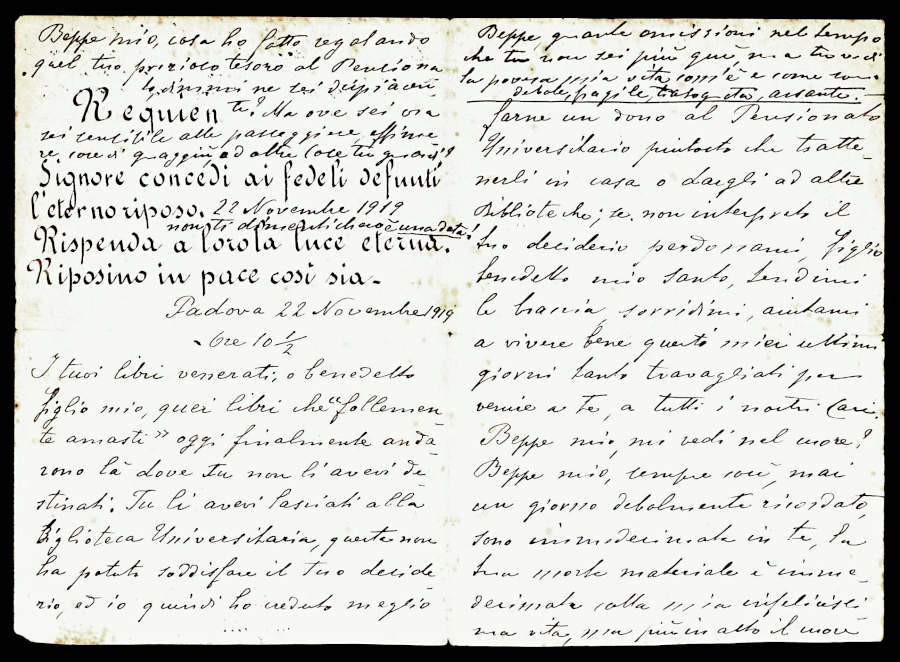 Beppe mio, cosa ho fatto regalando
quel tuo prezioso tesoro al Pensiona
to, dimmi ne sei dispiacen
te? Ma ove sei ora
Requien
sei sensibile alle passeggiere, effime
re cose di quaggiù, ad altre cose tu guardi?
Signore concedi ai fedeli defunti
l'eterno riposo. 22 Novembre 1919
non ti dimentichiamo è una data!
Rispenda a loro la luce eterna.
Riposino in pace così sia.
Padova 22 Novembre 1919
Ore 10 1/2
I tuoi libri venerati, o benedetto
figlio mio, quei libri che "follemen
te amasti" oggi finalmente andà
rono là dove tu non li avevi de
stinati. Tu li avevi lasciati alla
Biglioteca Universitaria, questa non
ha potuto soddisfare il tuo deside
rio, ed io quindi ho creduto meglio
Beppe, quante omissioni nel tempo
che tu non sei più qui, ma tu vedi
la povera mia vita com'è e come son
debole, fragile, ansante.
farne un dono al Pensionato
Universitario piuttosto che tratte-
nerli in casa o dargli ad altre
Biblioteche; se non interpreto il
tuo desiderio perdonami, figlio
benedetto mio Santo, tendimi
le braccia, sorridimi, aiutami
a vivere bene questi miei ultimi
giorni tanto travagliati per
venire a te, a tutti i nostri Cari.
Beppe mio, mi vedi nel cuore?
Beppe mio, sempre così, mai
un giorno debolmente ricordato,
sono immedesimata in te, la
tua morte materiale è imme-
desimata colla mia infelicissi
ma vita, ma più in alto il cuore